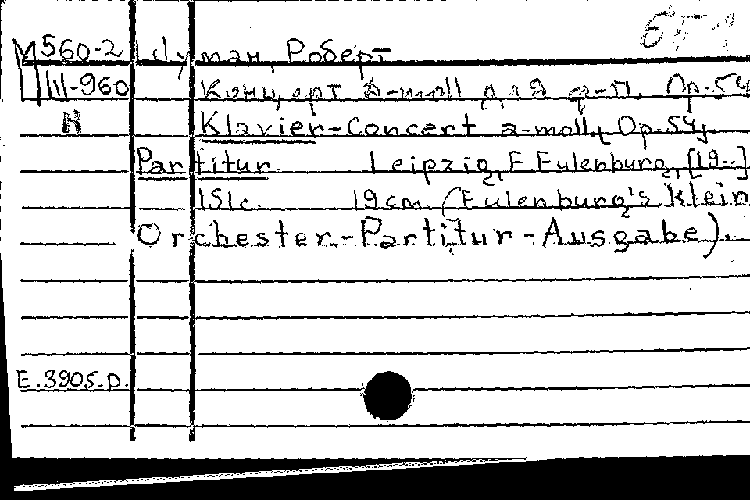 М560-2 Шуман, Роберт
III-960 Концерт a-moll для ф-п. Op.54
Klavier-Concert a-moll, Op.54.
Partitur Leipzig, E. Eulenburg, [19--]
151c. 19cm. (Eulenburg's Klein
Orchester-Partitur-Ausgabe).
E.3905.D.